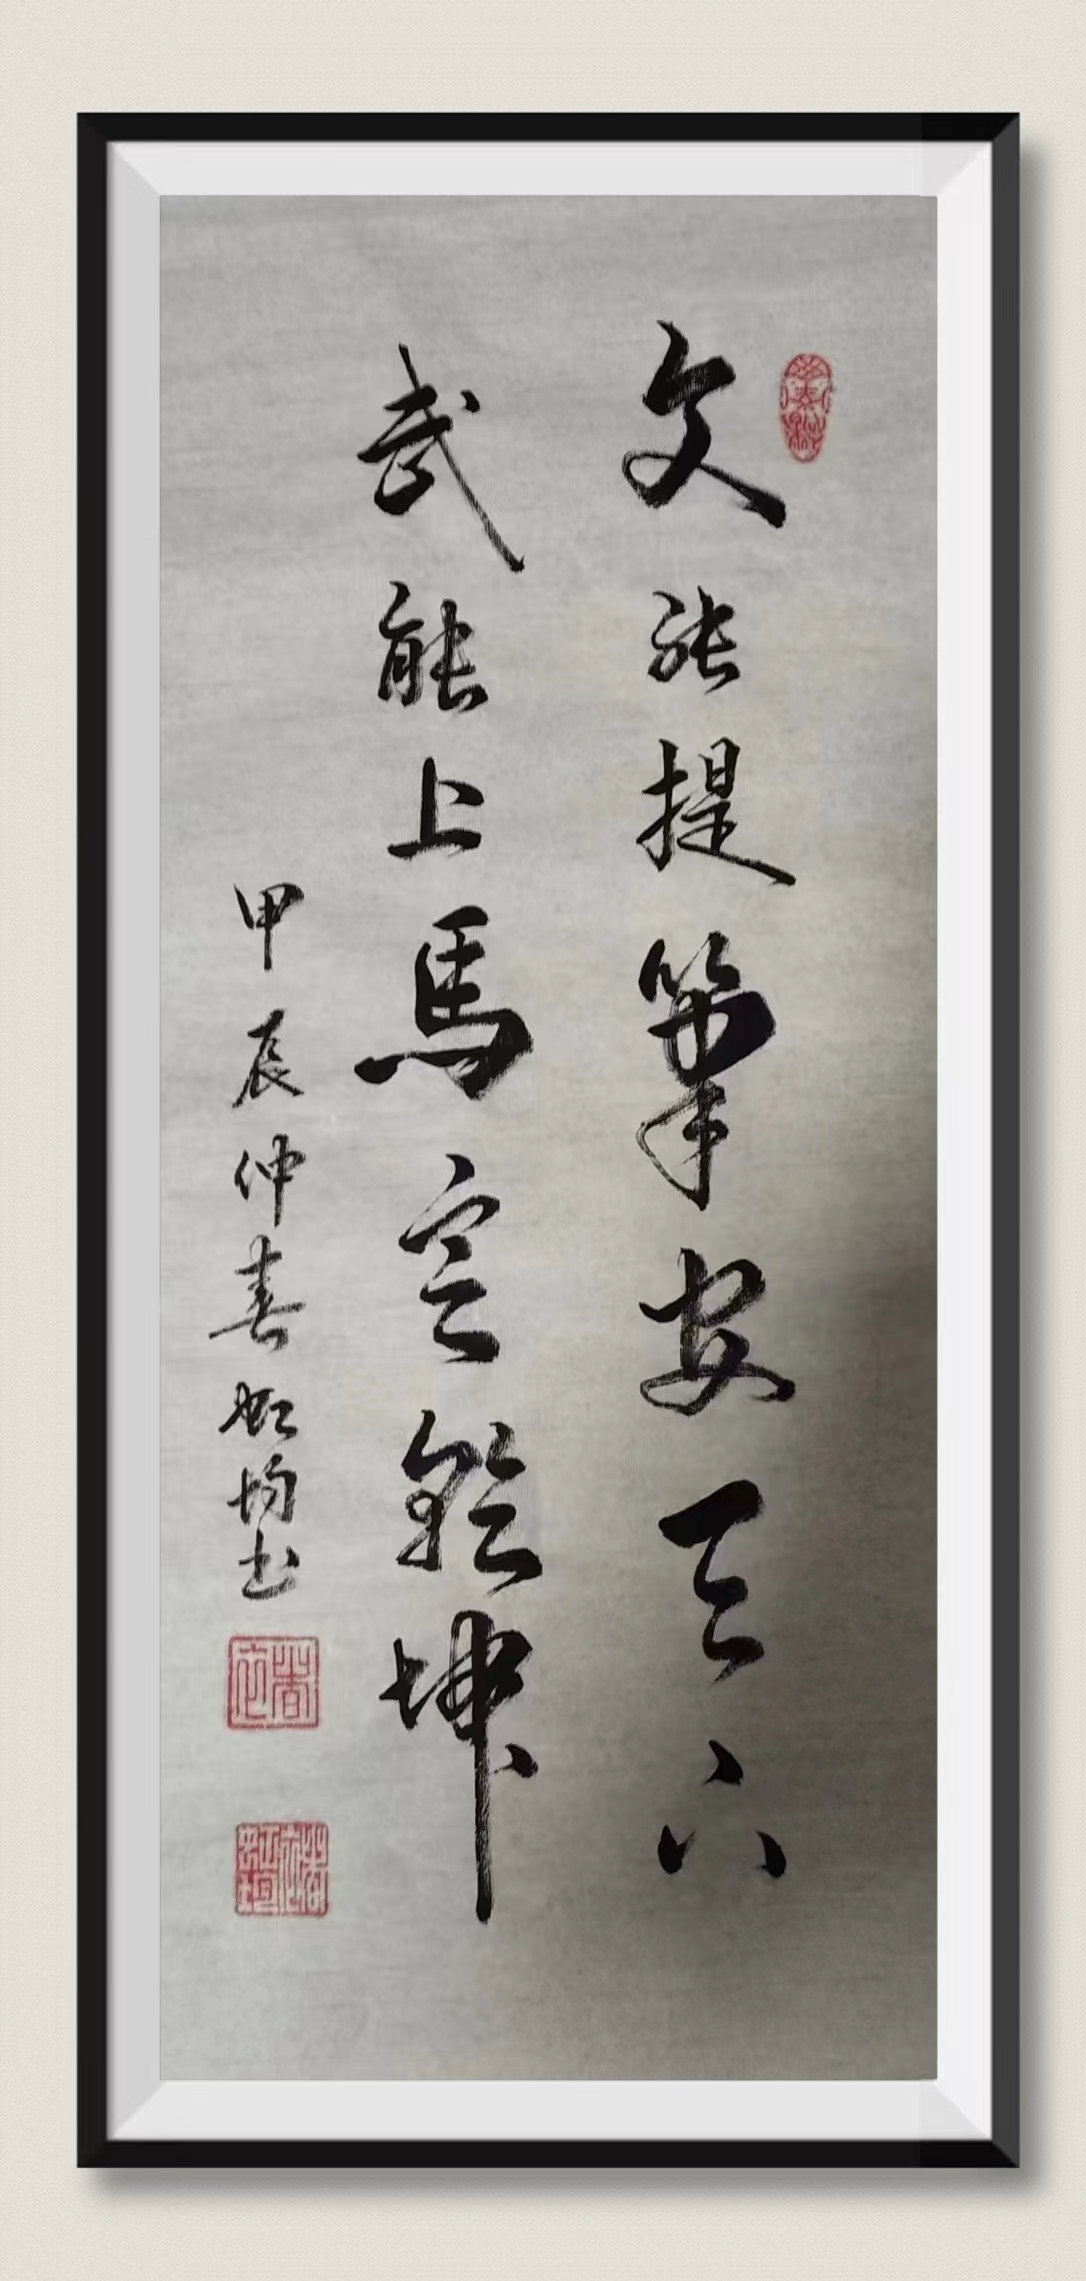 文能提筆安天下
武能上馬定乾坤
甲辰仲春虹均书